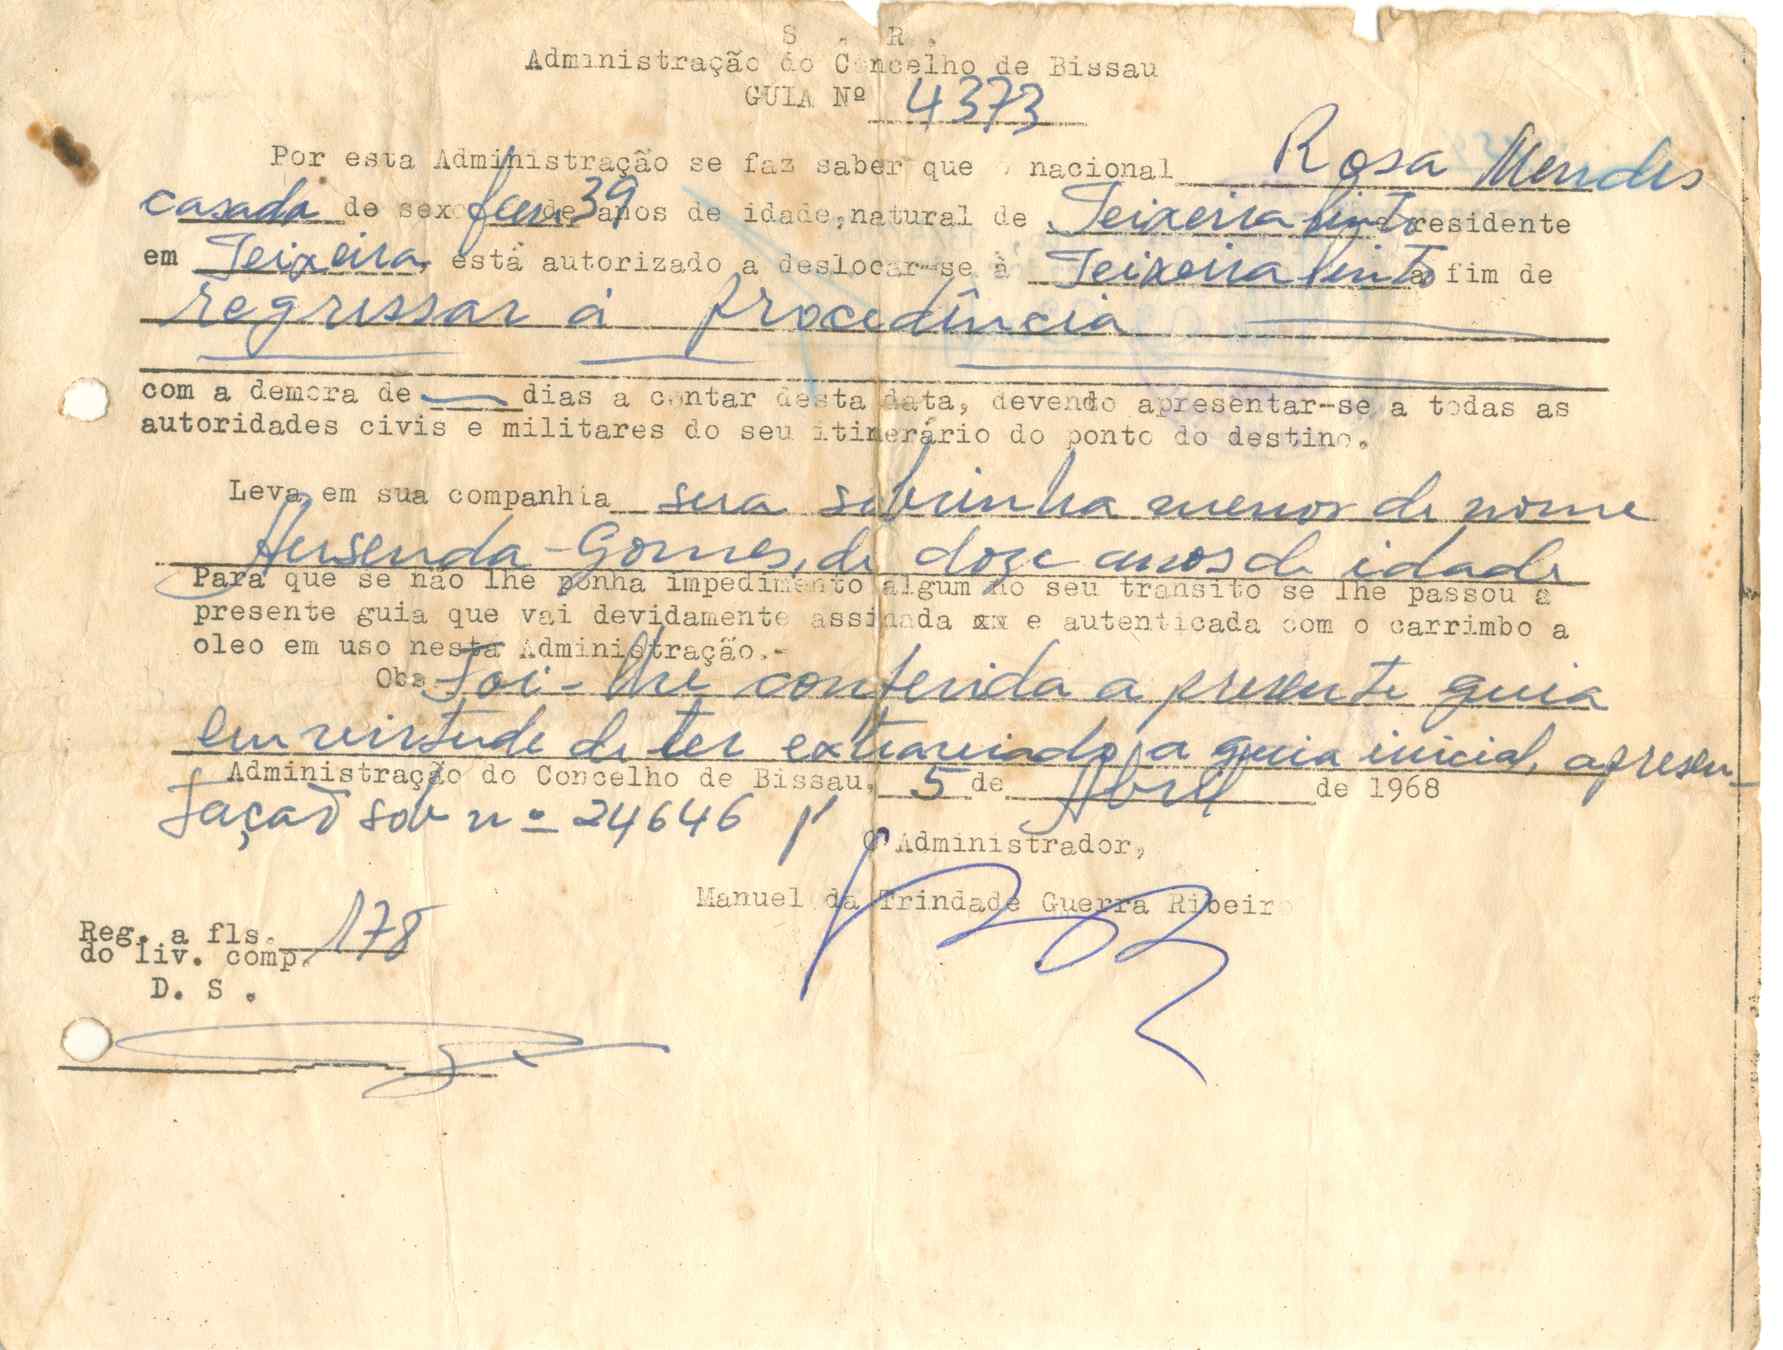 S . R .
Administração do Concelho de Bissau
GUIA Nº 4373
Por esta Administração se faz saber que o nacional Rosa Mendes
casada de sexo fem de 39 anos de idade, natural de Teixeira Pinto residente
em Teixeira, está autorizado a deslocar-se à Teixeira Pinto a fim de
regressar á procedência
com a demora de dias a contar desta data, devendo apresentar-se a todas as
autoridades civis e militares do seu itinerário do ponto do destino.
Leva em sua companhia sua sobrinha menor de nome
Hersenda-Gomes, de doze anos de idade
Para que se não lhe ponha impedimento algum no seu transito se lhe passou a
presente guia que vai devidamente assinada xx e autenticada com o carrimbo a
oleo em uso nesta Administração.-
Obs Foi-lhe conferida a presente guia
em virtude de ter extraviado a guia inicial, apresen-
tação sob nº 24646
Administração do Concelho de Bissau, 5 de Abril de 1968
O Administrador,
Manuel da Trindade Guerra Ribeiro
Reg. a fls. 178
do liv. comp.
D. S .